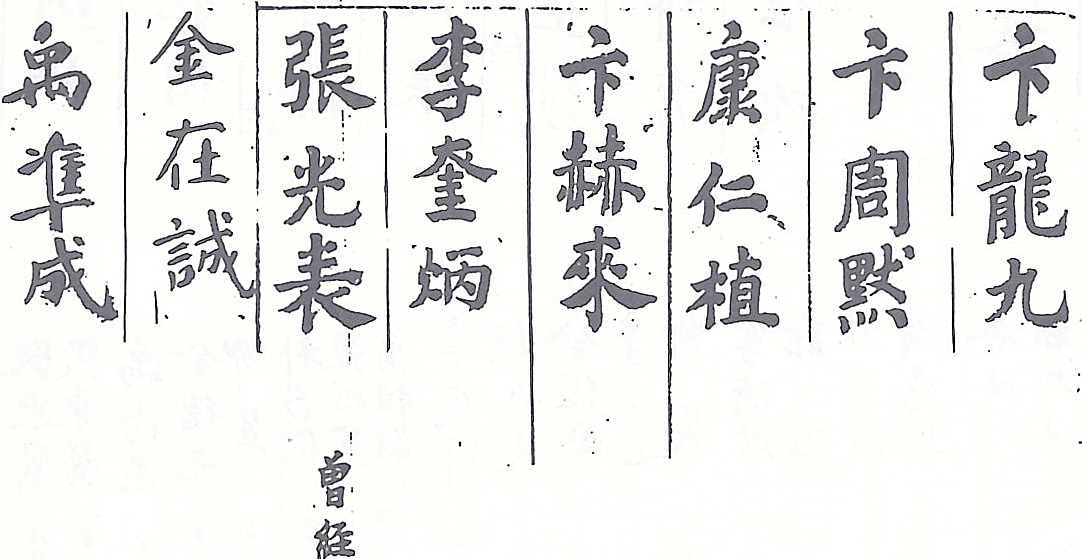 卞龍九
卞周默
康仁植
卞赫來
李奎炳
張光表
曾經
金在誠
禹準成